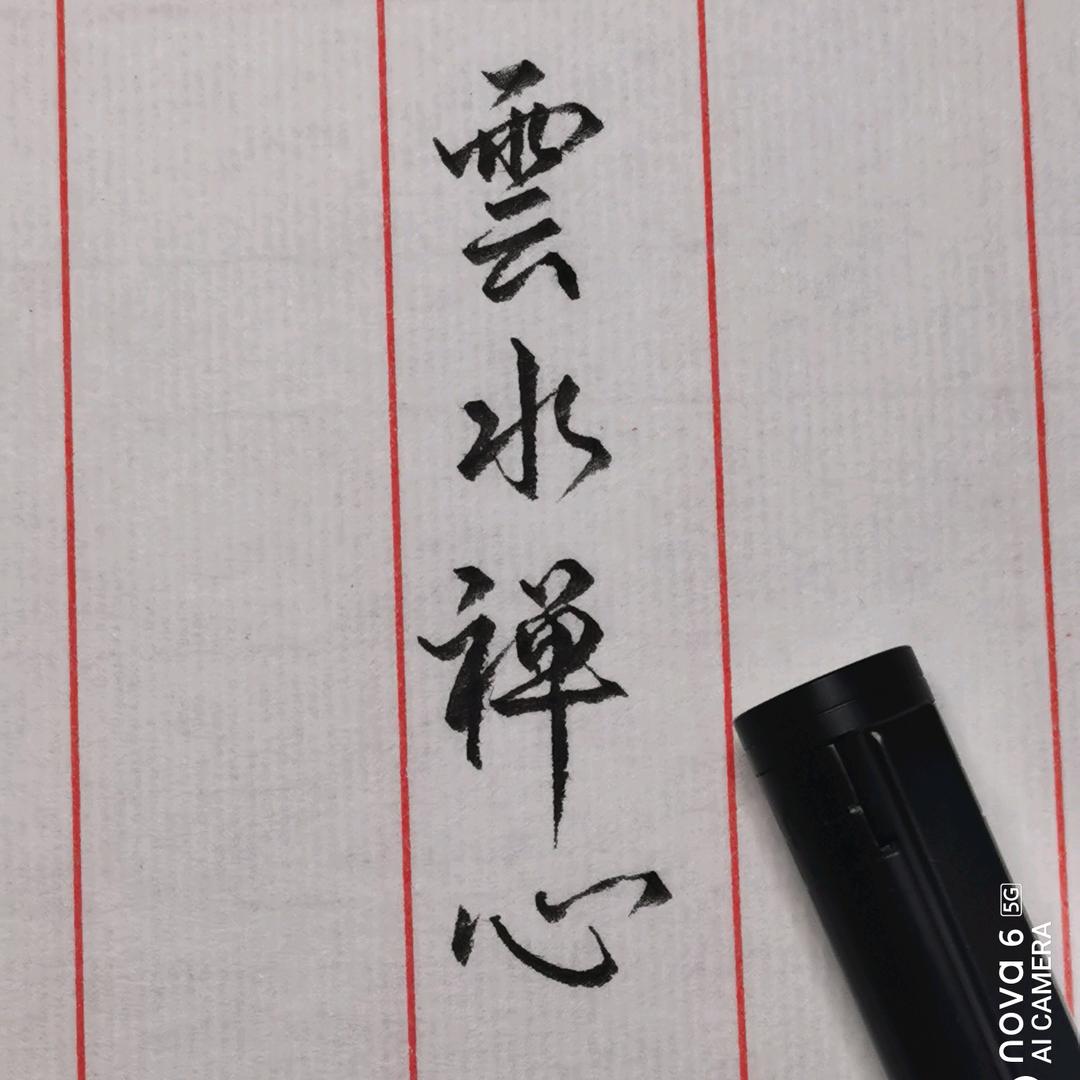 雲水禅心
nova 6 5G
AI CAMERA